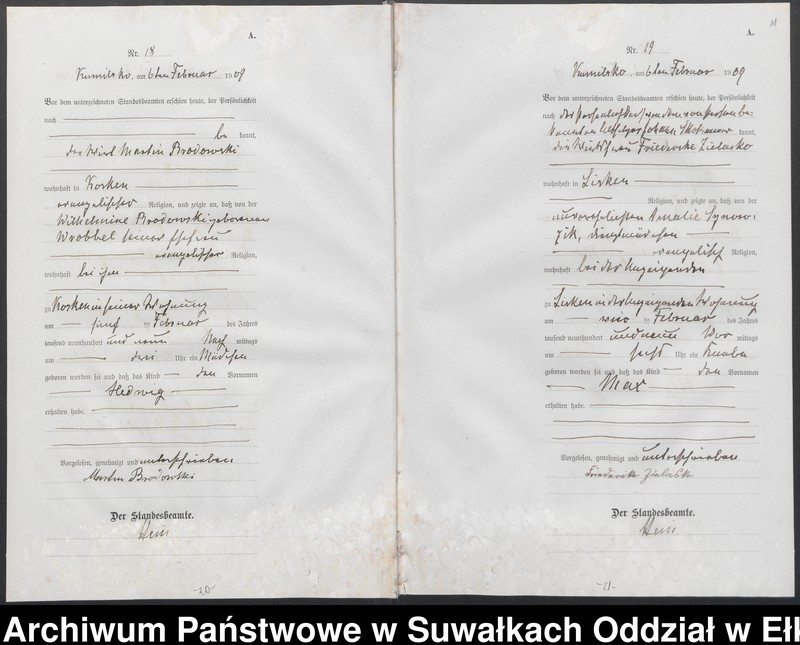 A.
Nr. 18
Kumilsko, am 6ten Februar 1909
Vor dem unterzeichneten Standesbeamten erschien heute, der Persönlichkeit
nach
be kannt,
der Wirt Martin Brodowski
wohnhaft in Kosken
evangelischer Religion, und zeigte an, daß von der
Wilhelmine Brodowski geborenen
Wrobbel seiner Ehefrau
evangelischer Religion,
wohnhaft bei ihm
zu Kosken in seiner Wohnung
am fünf ten Februar des Jahres
tausend neunhundert und neun Nach mittags
um drei Uhr ein Mädchen
geboren worden sei und daß das Kind den Vornamen
Hedwig
erhalten habe.
Vorgelesen, genehmigt und unterschrieben
Martin Brodowski
Der Standesbeamte.
-20-
11
A.
Nr. 19
Kumilsko, am 6ten Februar 1909
Vor dem unterzeichneten Standesbeamten erschien heute, der Persönlichkeit
nach der Persönlichkeit nach
kannt,
die Friederike Zielasko
wohnhaft in Lisken
Religion, und zeigte an, daß von der
unverehelichten Amalie
Dienstmädchen
evangelisch Religion,
wohnhaft bei der Anzeigenden
zu Lisken in der Anzeigenden Wohnung
am vier ten Februar des Jahres
tausend neunhundert und neun Vor mittags
um sechs Uhr ein Knabe
geboren worden sei und daß das Kind den Vornamen
Max
erhalten habe.
Vorgelesen, genehmigt und unterschrieben
Friederike Zielasko
Der Standesbeamte.
-21-
Archiwum Państwowe w Suwałkach Oddział w Ełk